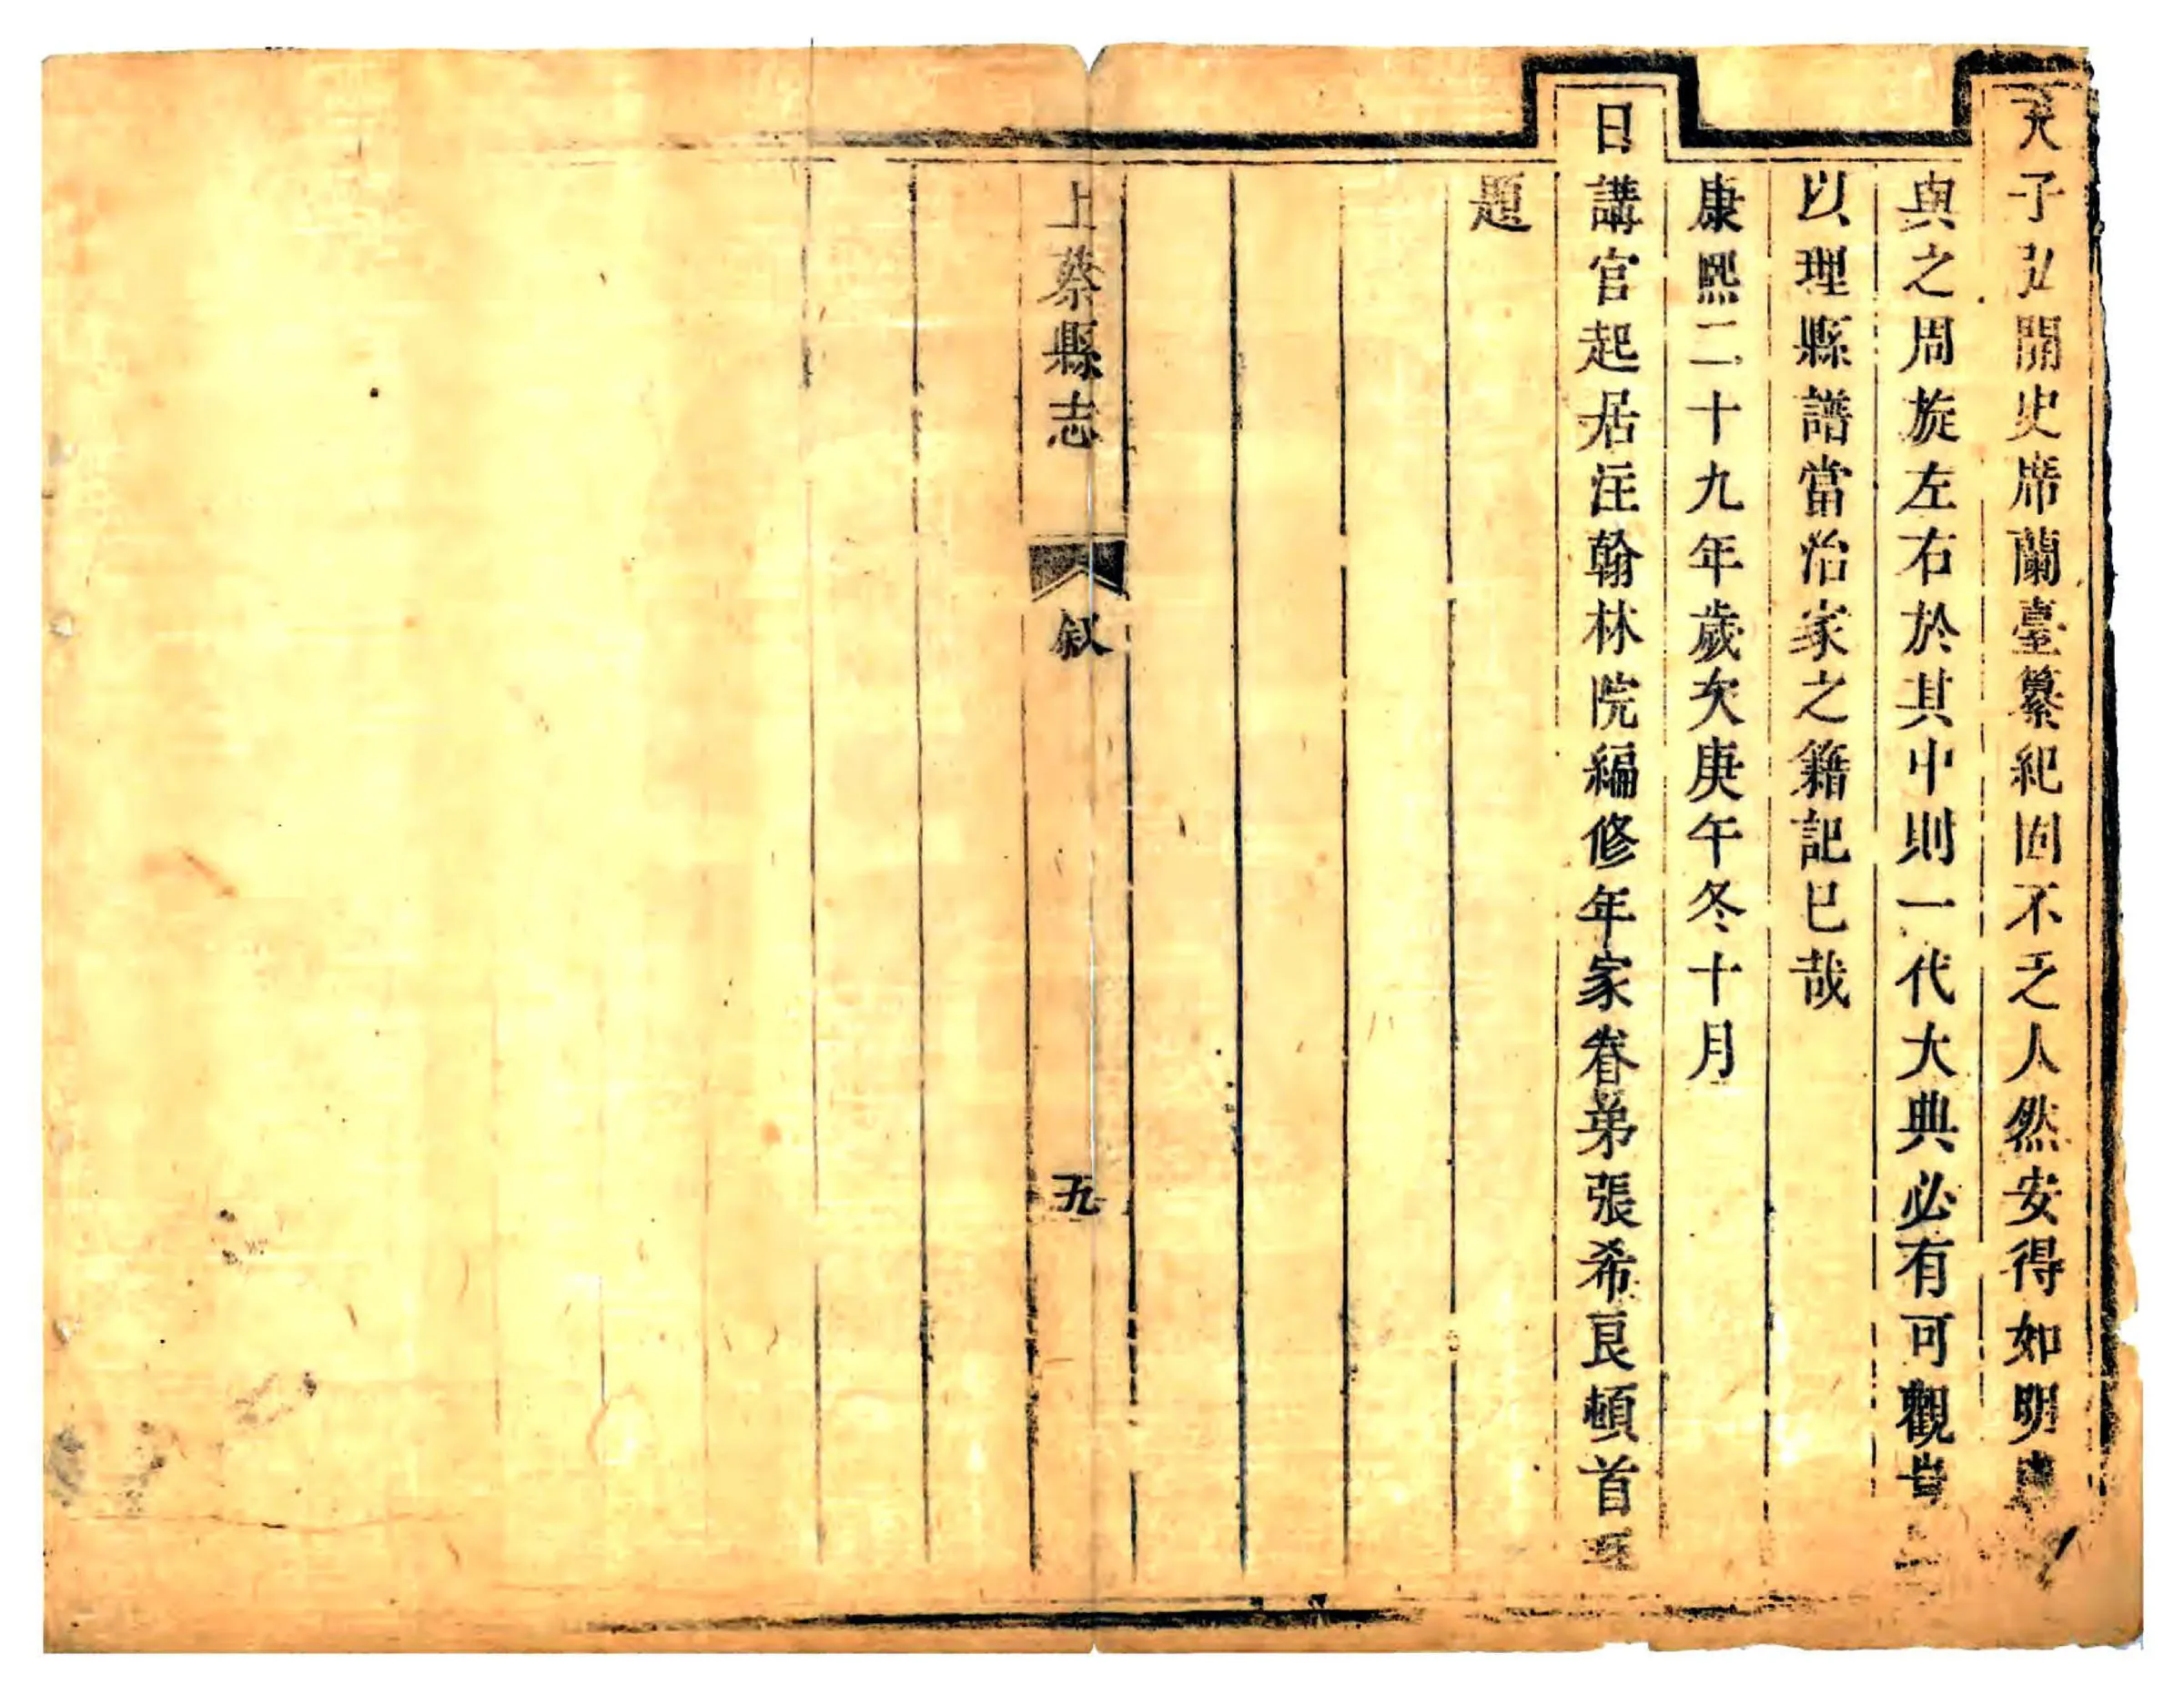 天子弘開史席蘭臺纂紀固不乏人然安得如明
與之周旋左右於其中則一代大典必有可觀豈
以理縣譜當治家之籍記已哉
康熙二十九年歲次庚午冬十月
日講官起居注翰林院編修年家眷弟張希良頓首
題
上蔡縣志
叙
九